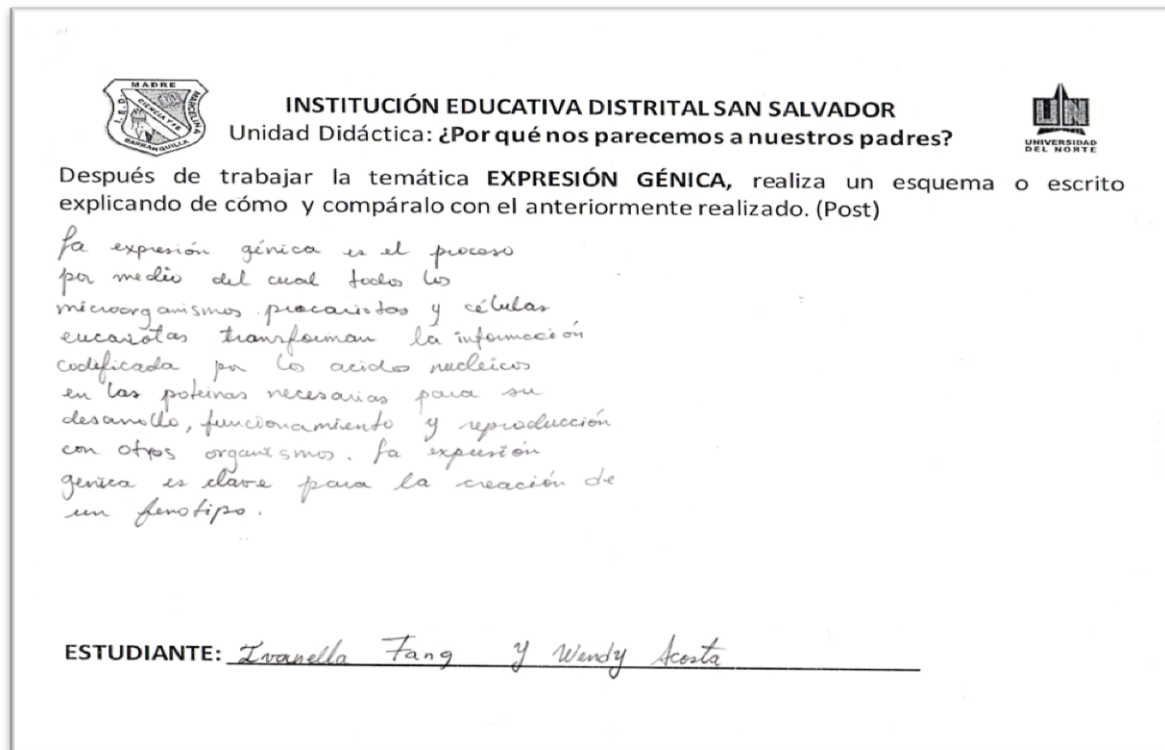 MADRE
I.E.D.
MARCELINA
CIENCIA Y FE
BARRANQUILLA
INSTITUCIÓN EDUCATIVA DISTRITAL SAN SALVADOR
Unidad Didáctica: ¿Por qué nos parecemos a nuestros padres?
UN
UNIVERSIDAD
DEL NORTE
Después de trabajar la temática EXPRESIÓN GÉNICA, realiza un esquema o escrito
explicando de cómo y compáralo con el anteriormente realizado. (Post)
La expresión génica es el proceso
por medio del cual todos los
microorganismos procariotas y células
eucariotas transforman la información
codificada por los acidos nucleicos
en las proteinas necesarias para su
desarrollo, funcionamiento y reproducción
con otros organismos. La expresión
genica es clave para la creación de
un fenotipo.
ESTUDIANTE: Ivanella Fang y Wendy Acosta